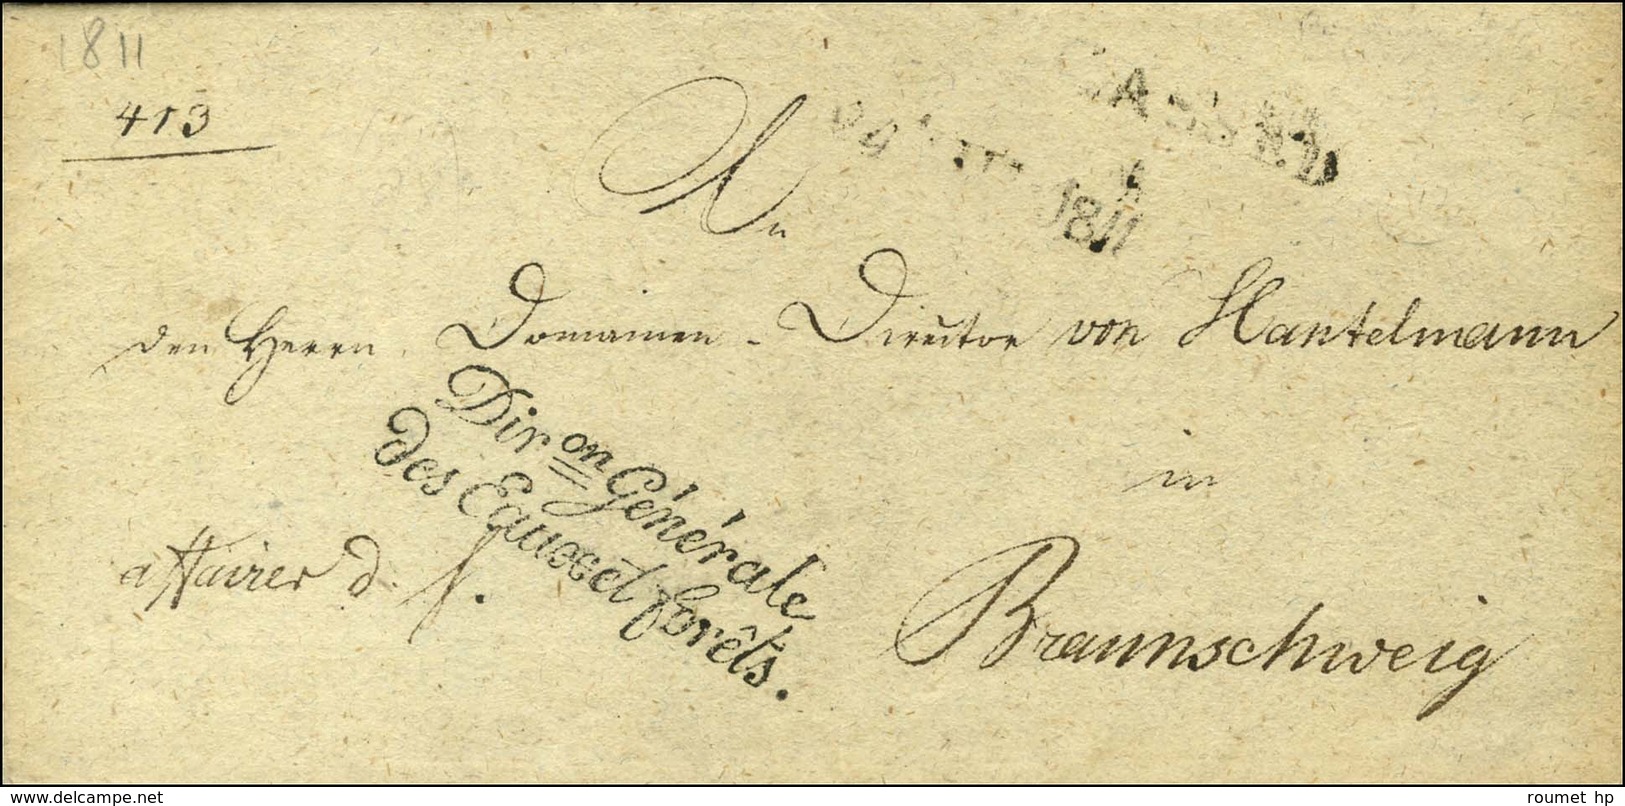 1811
413
CASSEL
1811
An
den Herrn Domainen-Director von Hantelmann
in
Braunschweig
Dir.on Générale
des Eaux et forêts.
affairer d. f.
www.delcampe.net
roumet hp